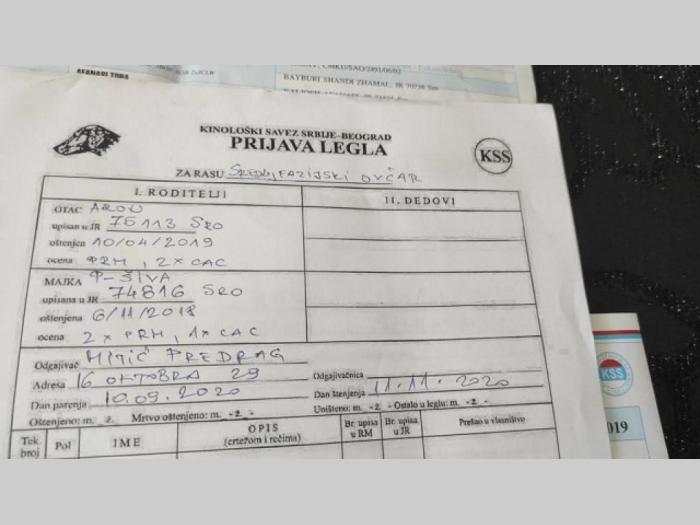 BAYBURI SHANDI ZHAMAL, JR 70738 Sro
KINOLOŠKI SAVEZ SRBIJE-BEOGRAD
PRIJAVA LEGLA
KSS
ZA RASU SREDNJEAZIJSKI OVČAR
I. RODITELJI
II. DEDOVI
OTAC AROW
upisan u JR 75113 SRO
oštenjen 10/04/2019
ocena PRM, 2x CAC
MAJKA P-ŠIVA
upisana u JR 74816 SRO
oštenjena 6/11/2018
ocena 2x PRM, 1x CAC
Odgajivač MITIĆ PREDRAG
Odgajivačnica
Adresa 16 OKTOBRA 29
Dan parenja 10.09.2020
Dan štenjenja 11.11.2020
Oštenjeno: m. ž. Mrtvo oštenjeno: m. -ž. -
Uništeno: m. -ž. - Ostalo u leglu: m. -ž. -
Tek. broj
Pol
IME
OPIS (crtežom i rečima)
Br. upisa u RM
Br. upisa u JR
Prešao u vlasništvo
KSS
2019